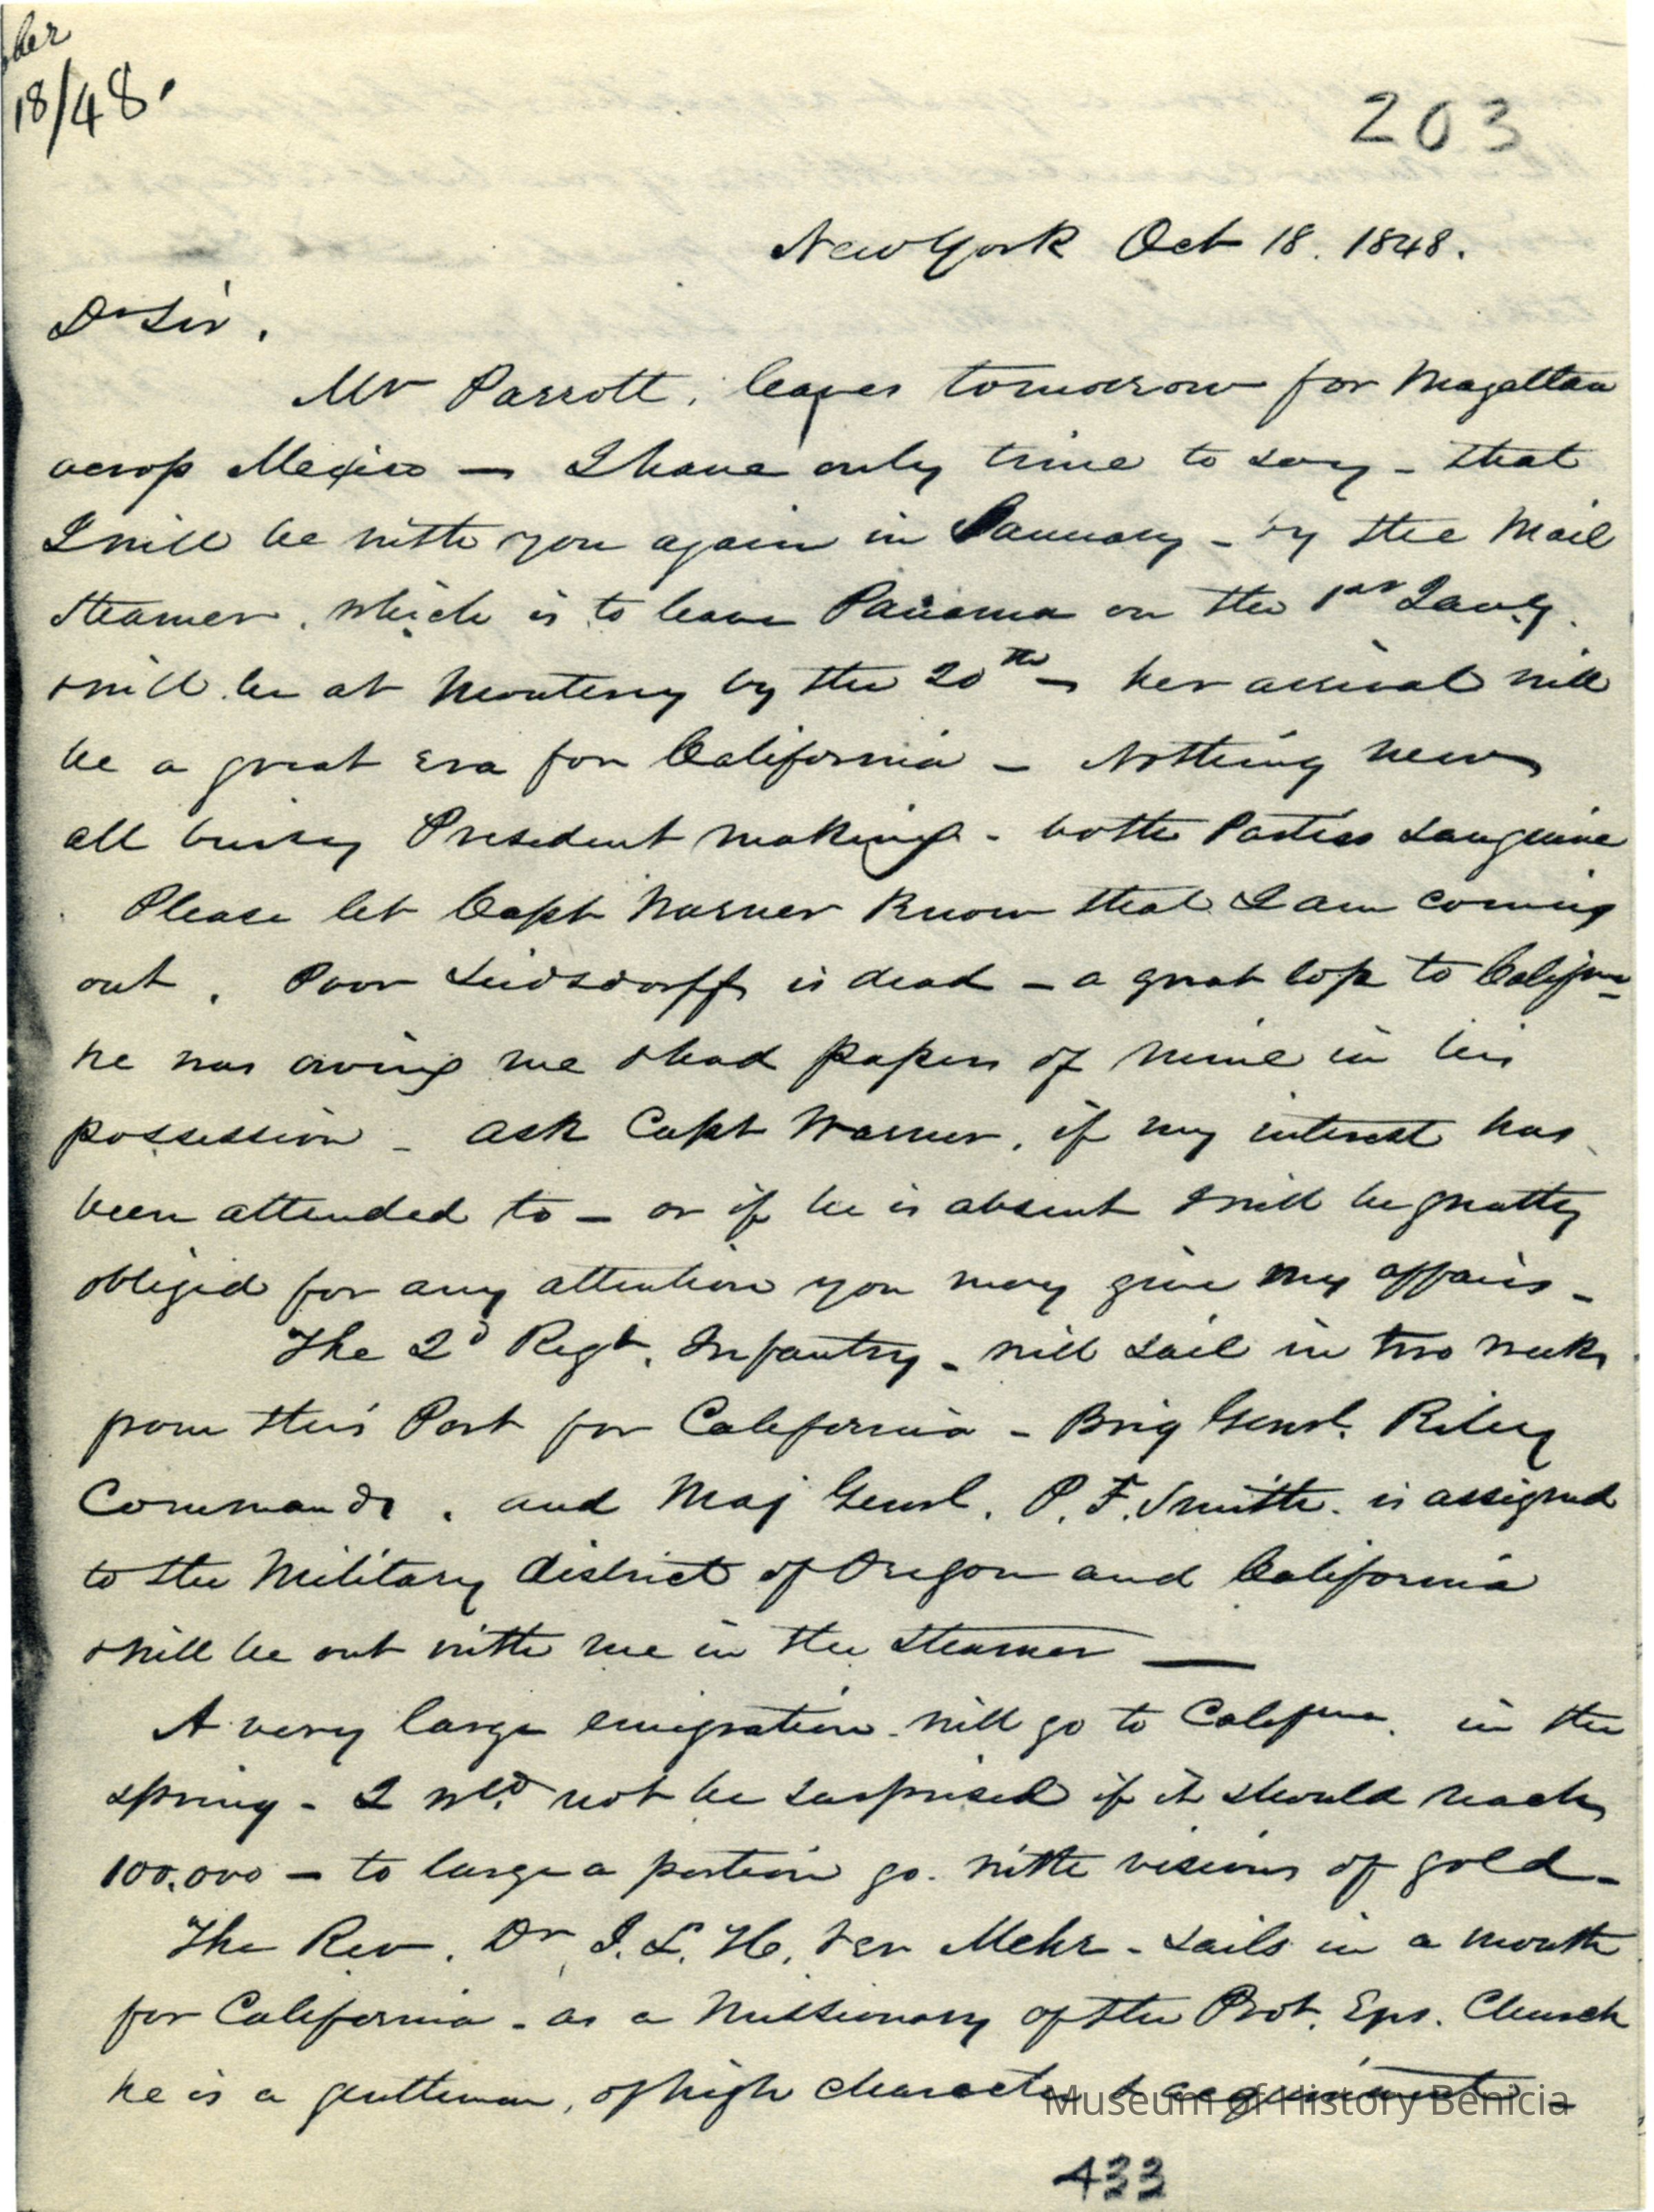 ber
18/48.
203
New York Oct 18. 1848.
Dr Sir.
Mr Parrott, leaves tomorrow for Mazatlan
across Mexico — I have only time to say - that
I will be with you again in January - by the Mail
Steamer, which is to leave Panama on the 1st Jany.
& will be at Monterey by the 20th — her arrival will
be a great era for California — Nothing new
all busy President making - both Parties sanguine
Please let Capt Warner know that I am coming
out. Poor Leidsdorff is dead — a great loss to
he was owing me & had papers of mine in his
possession - ask Capt Warner, if my interest has
been attended to — or if he is absent I will be greatly
obliged for any attention you may give my affairs -
The 2d Regt. Infantry - will sail in two weeks
from this Port for California - Brig Genrl. Riley
Commands. and Maj Genrl. P. F. Smith. is assigned
to the Military district of Oregon and California
& will be out with me in the Steamer —
A very large emigration will go to in the
spring - I wld. not be surprised if it should reach
100,000 — to large a portion go with visions of gold -
The Rev. Dr J. L. H. Ver Mehr - sails in a month
for California - as a Missionary of the Prot. Eps. Church
he is a gentleman, of high character &
Museum of History Benicia
433